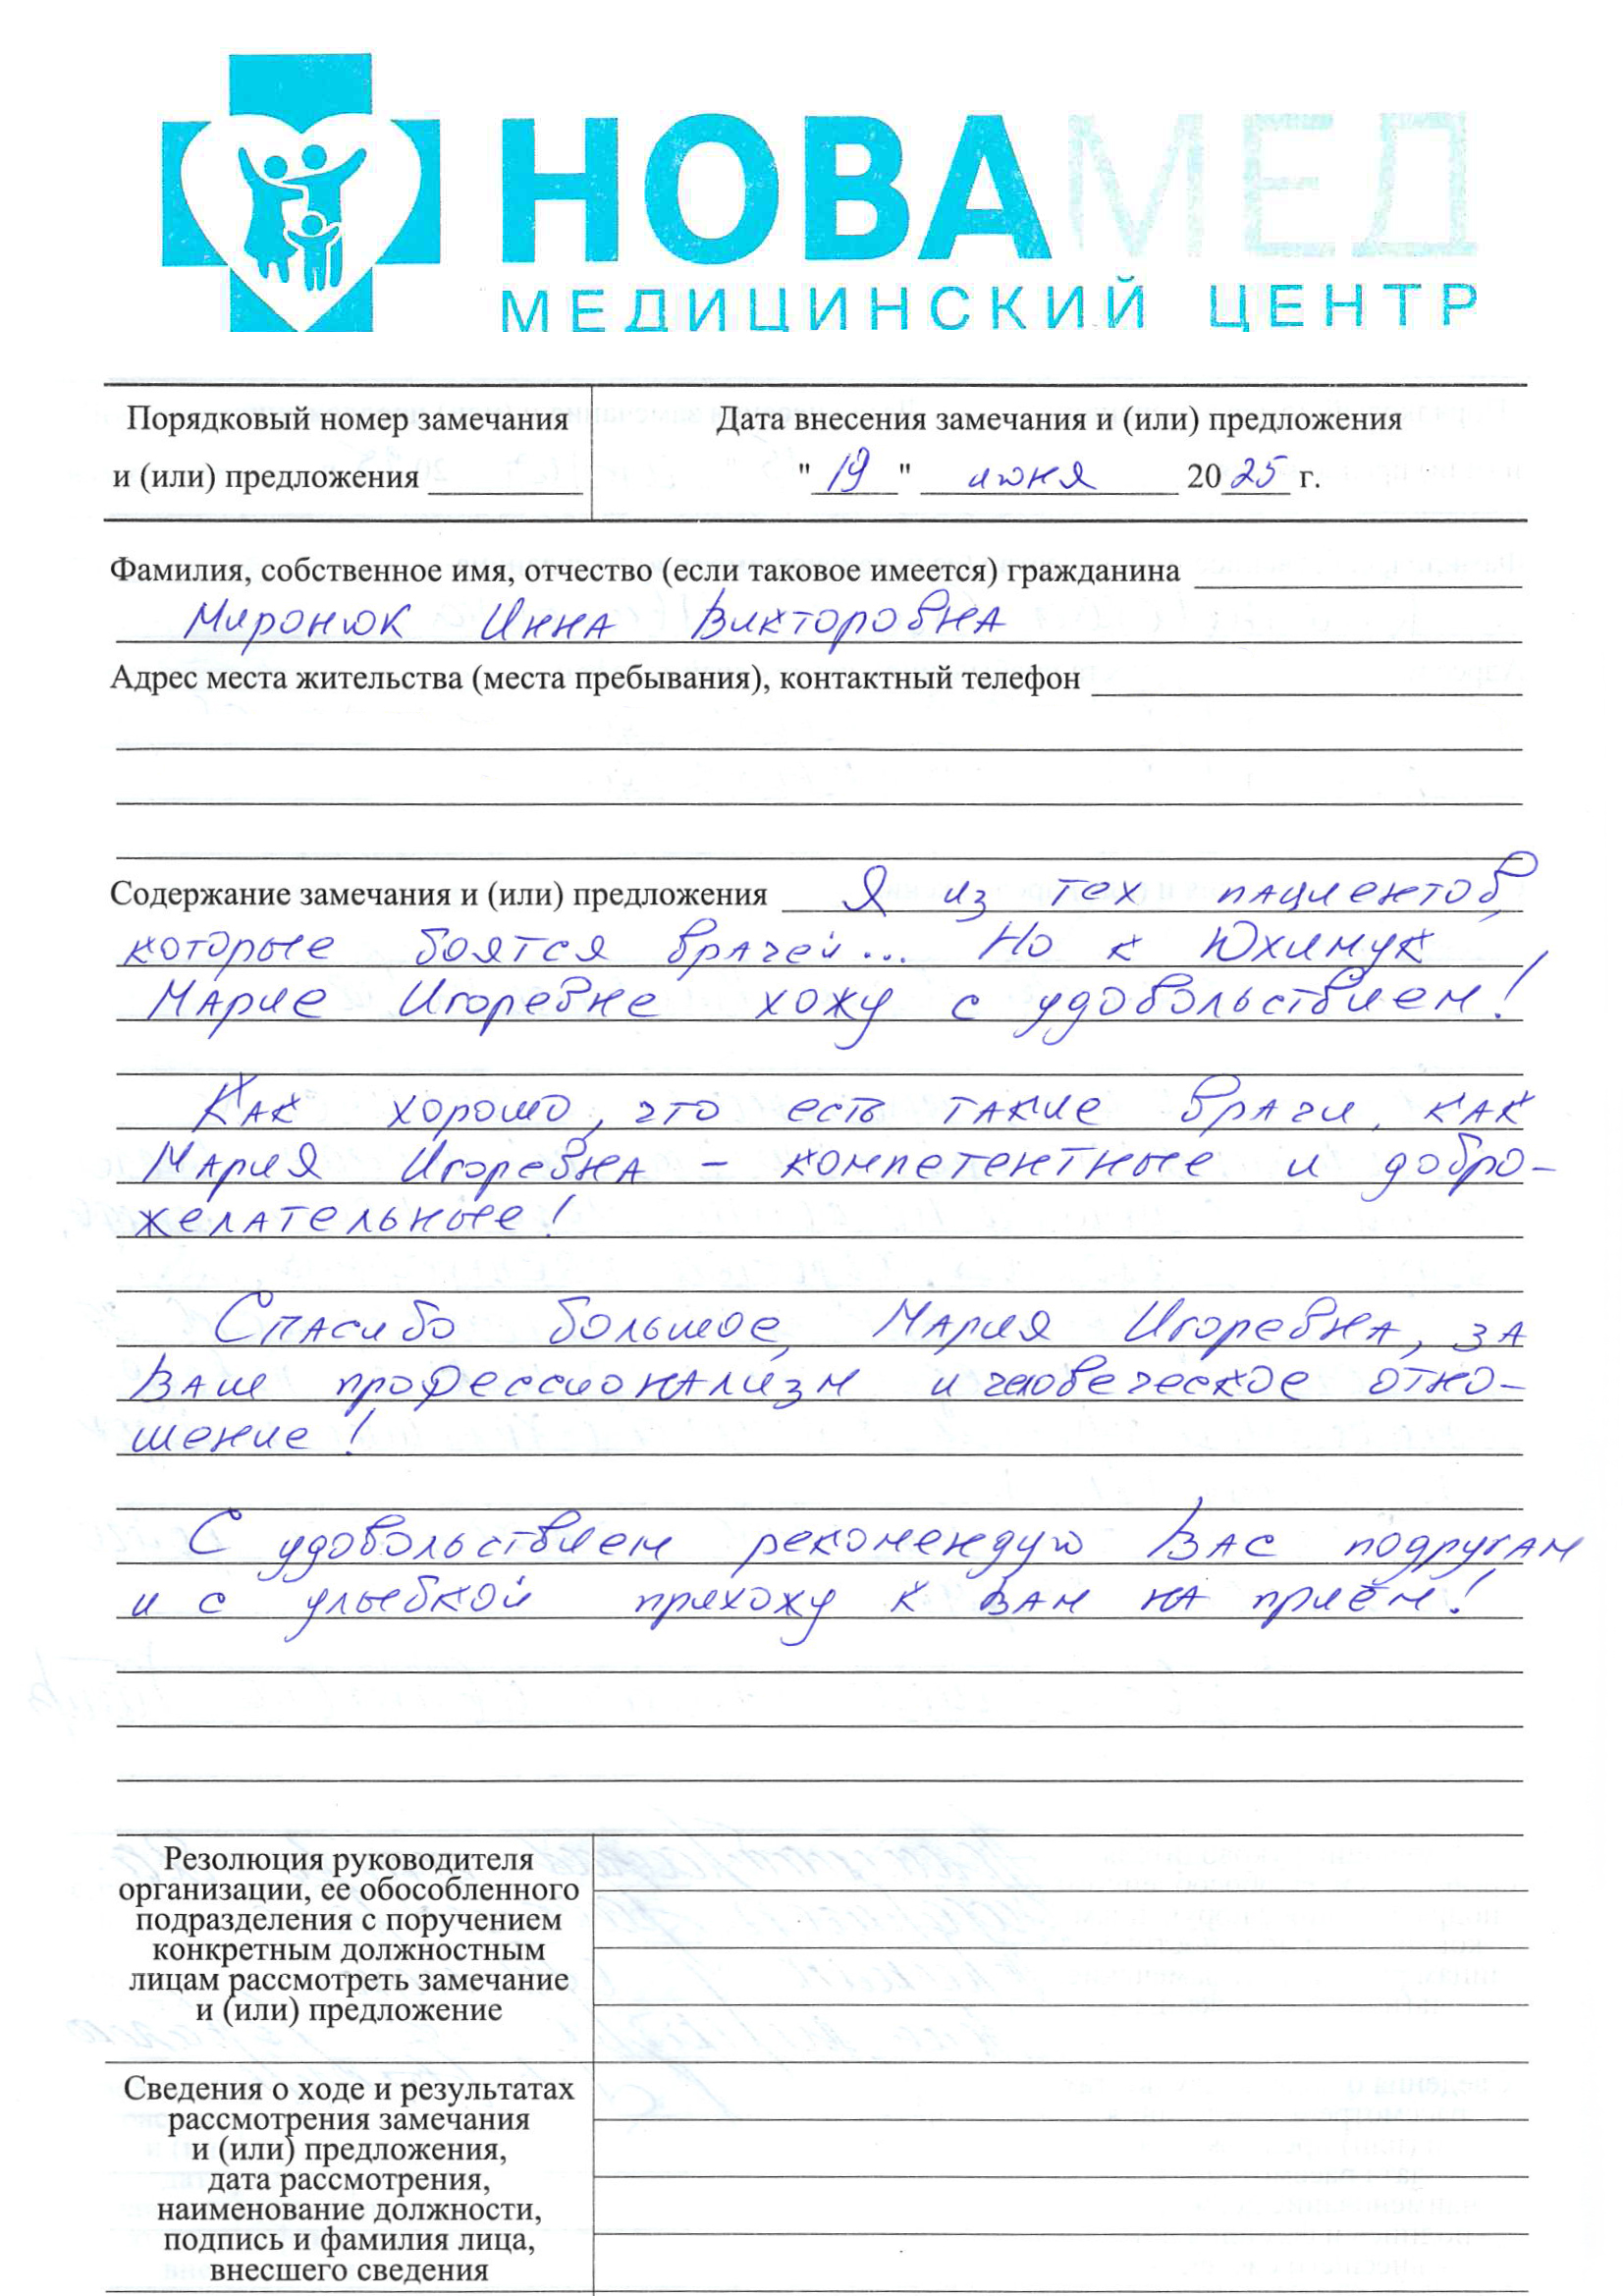 НОВАМЕД
МЕДИЦИНСКИЙ ЦЕНТР
Порядковый номер замечания
и (или) предложения
Дата внесения замечания и (или) предложения
"19" июня 2025 г.
Фамилия, собственное имя, отчество (если таковое имеется) гражданина
Миронюк Инна Викторовна
Адрес места жительства (места пребывания), контактный телефон
Содержание замечания и (или) предложения Я из тех пациентов,
которые боятся врачей... Но к Юхимук
Марие Игоревне хожу с удовольствием!
Как хорошо, что есть такие врачи, как
Мария Игоревна – компетентные и добро-
желательные!
Спасибо большое, Мария Игоревна, за
Ваш профессионализм и человеческое отно-
шение!
С удовольствием рекомендую Вас подругам
и с улыбкой прихожу к Вам на приём!
Резолюция руководителя
организации, ее обособленного
подразделения с поручением
конкретным должностным
лицам рассмотреть замечание
и (или) предложение
Сведения о ходе и результатах
рассмотрения замечания
и (или) предложения,
дата рассмотрения,
наименование должности,
подпись и фамилия лица,
внесшего сведения